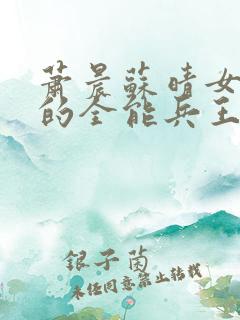 蕭晨蘇晴女
的全能兵王
銀子茵
未经同意禁止转载